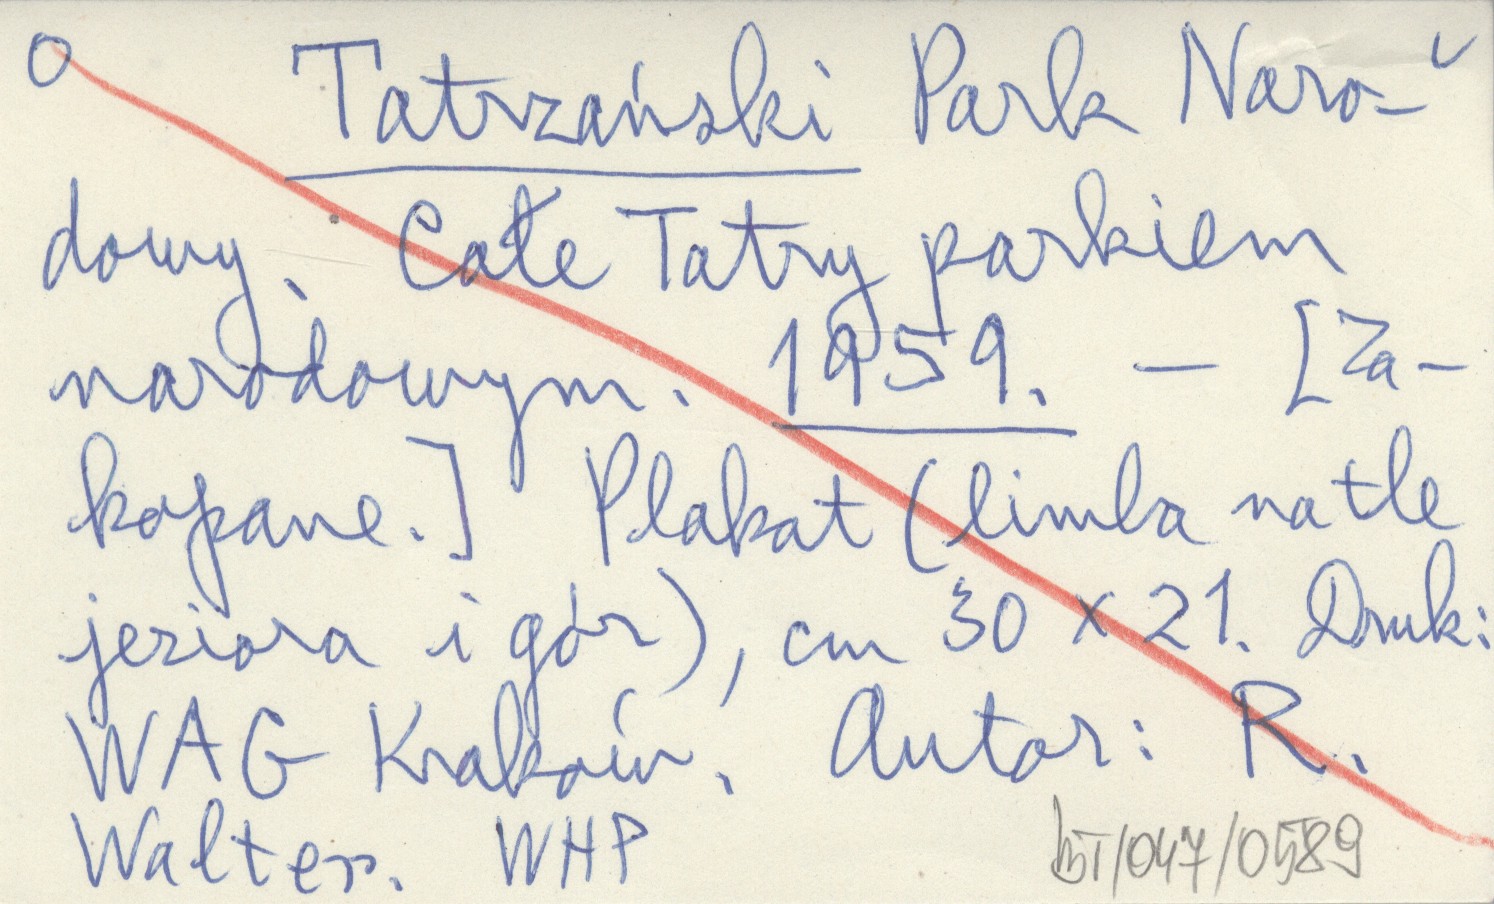 O Tatrzański Park Naro-
dowy. Całe Tatry parkiem
narodowym. 1959. — [Za-
kopane.] Plakat (limba na tle
jeziora i gór), cm 30 x 21. Druk:
WAG Kraków. Autor: R.
Walter. WHP
bT/047/0589